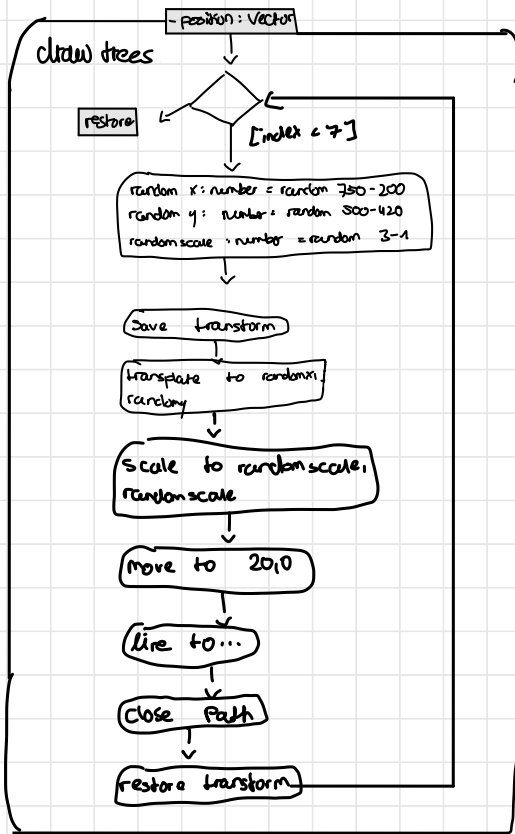 - position: Vector
draw trees
restore
[index < 7]
random x: number = random 750-200
random y: number = random 500-420
random scale: number = random 3-1
save transform
transplate to randomx,
randomy
scale to randomscale,
randomscale
move to 20,0
line to...
close Path
restore transform